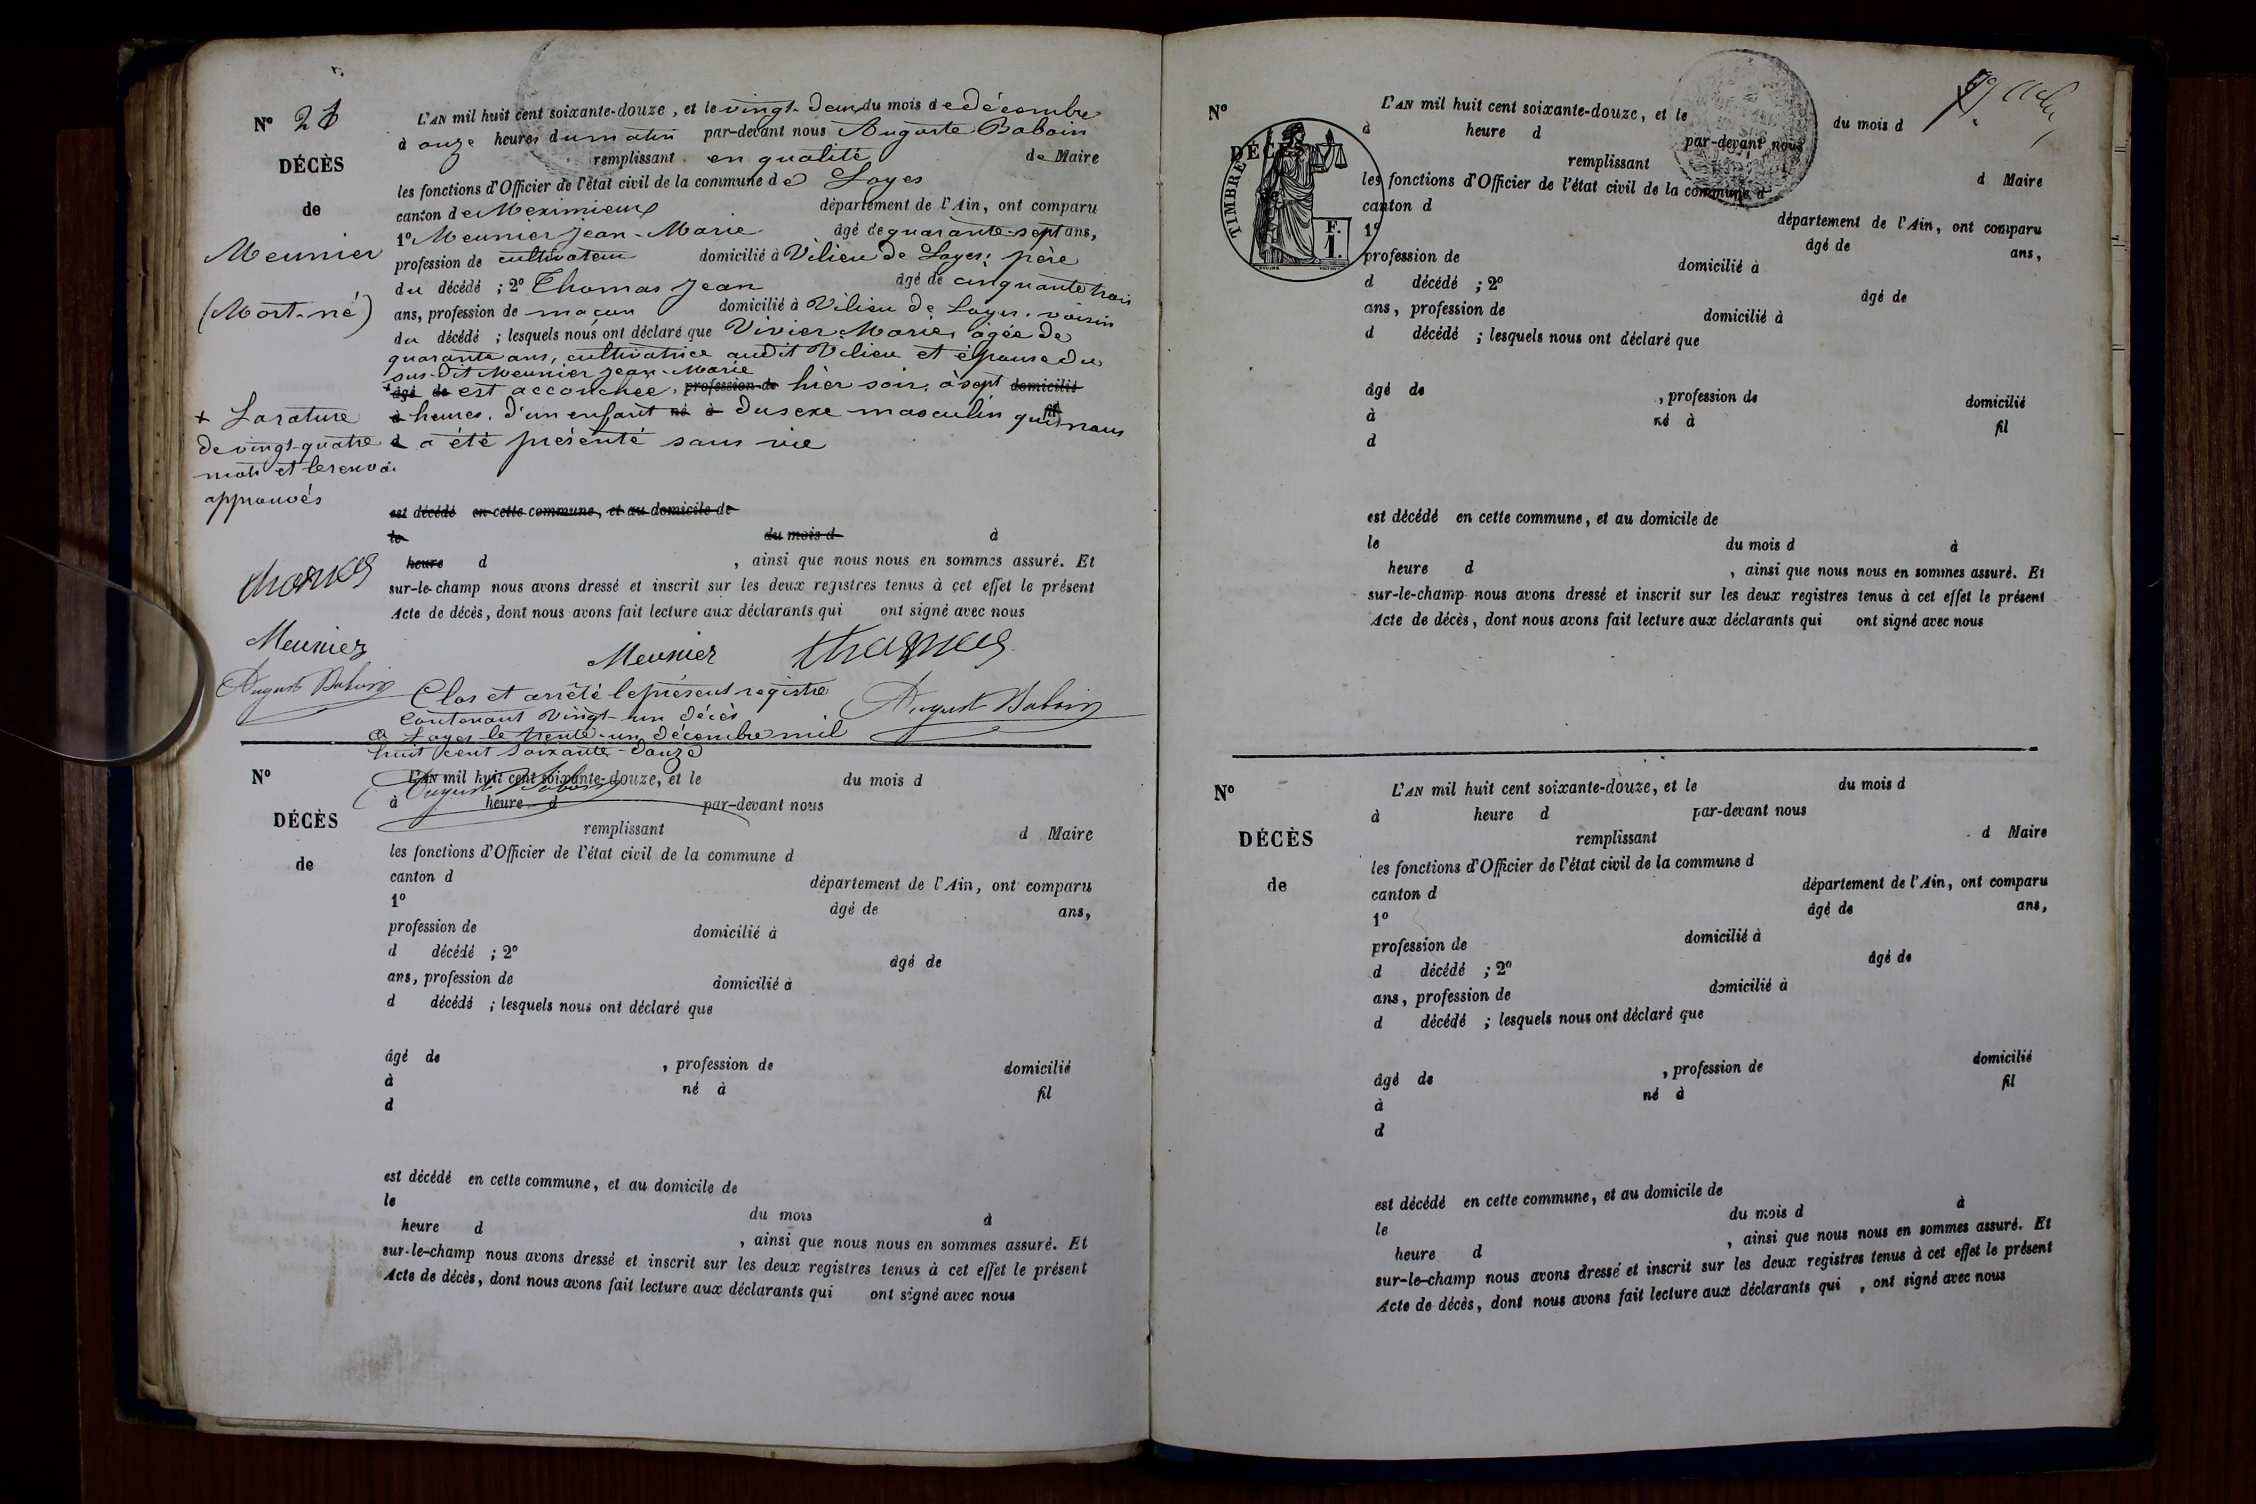 N° 21
DÉCÈS
de
Meunier
(Mort-né)
+ La rature
de vingt-quatre
mots et le renvoi
approuvés
thomas
Meunier
Auguste Baboin
L'AN mil huit cent soixante-douze, et le vingt-deux du mois de décembre
à onze heures du matin par-devant nous Auguste Baboin
remplissant en qualité de Maire
les fonctions d'Officier de l'état civil de la commune de Loyes
canton de Meximieux département de l'Ain, ont comparu
1° Meunier Jean-Marie âgé de quarante-sept ans,
profession de cultivateur domicilié à Vilieu de Loyes, père
du décédé ; 2° Thomas Jean âgé de cinquante trois
ans, profession de maçon domicilié à Vilieu de Loyes, voisin
du décédé ; lesquels nous ont déclaré que Vivier Marie, âgée de
quarante ans, cultivatrice audit Vilieu et épouse du
sus-dit Meunier Jean-Marie
+ âgé de est accouchée, profession de hier soir, à sept domicilié
à heures, d'un enfant né à du sexe masculin qu'il nous
d a été présenté sans vie
est décédé en cette commune, et au domicile de
le du mois d à
heure d , ainsi que nous nous en sommes assuré. Et
sur-le-champ nous avons dressé et inscrit sur les deux registres tenus à cet effet le présent
Acte de décès, dont nous avons fait lecture aux déclarants qui ont signé avec nous
Meunier thomas
Clos et arrêté le présent registre
contenant vingt-un décès
à Loyes le trente-un décembre mil
huit cent soixante-douze
Auguste Baboin
Auguste Baboin
N°
DÉCÈS
de
L'AN mil huit cent soixante-douze, et le du mois d
à heure d par-devant nous
remplissant d Maire
les fonctions d'Officier de l'état civil de la commune d
canton d département de l'Ain, ont comparu
1° âgé de ans,
profession de domicilié à
d décédé ; 2° âgé de
ans, profession de domicilié à
d décédé ; lesquels nous ont déclaré que
âgé de , profession de domicilié
à né à fil
d
est décédé en cette commune, et au domicile de
le du mois à
heure d , ainsi que nous nous en sommes assuré. Et
sur-le-champ nous avons dressé et inscrit sur les deux registres tenus à cet effet le présent
Acte de décès, dont nous avons fait lecture aux déclarants qui ont signé avec nous
N°
DÉCÈS
TIMBRE
F.
1.
L'AN mil huit cent soixante-douze, et le du mois d
à heure d par-devant nous
remplissant d Maire
les fonctions d'Officier de l'état civil de la commune d
canton d département de l'Ain, ont comparu
1° âgé de ans,
profession de domicilié à
d décédé ; 2° âgé de
ans, profession de domicilié à
d décédé ; lesquels nous ont déclaré que
âgé de , profession de domicilié
à né à fil
d
est décédé en cette commune, et au domicile de
le du mois d à
heure d , ainsi que nous nous en sommes assuré. Et
sur-le-champ nous avons dressé et inscrit sur les deux registres tenus à cet effet le présent
Acte de décès, dont nous avons fait lecture aux déclarants qui ont signé avec nous
N°
DÉCÈS
de
L'AN mil huit cent soixante-douze, et le du mois d
à heure d par-devant nous
remplissant d Maire
les fonctions d'Officier de l'état civil de la commune d
canton d département de l'Ain, ont comparu
1° âgé de ans,
profession de domicilié à
d décédé ; 2° âgé de
ans, profession de domicilié à
d décédé ; lesquels nous ont déclaré que
âgé de , profession de domicilié
à né à fil
d
est décédé en cette commune, et au domicile de
le du mois d à
heure d , ainsi que nous nous en sommes assuré. Et
sur-le-champ nous avons dressé et inscrit sur les deux registres tenus à cet effet le présent
Acte de décès, dont nous avons fait lecture aux déclarants qui , ont signé avec nous